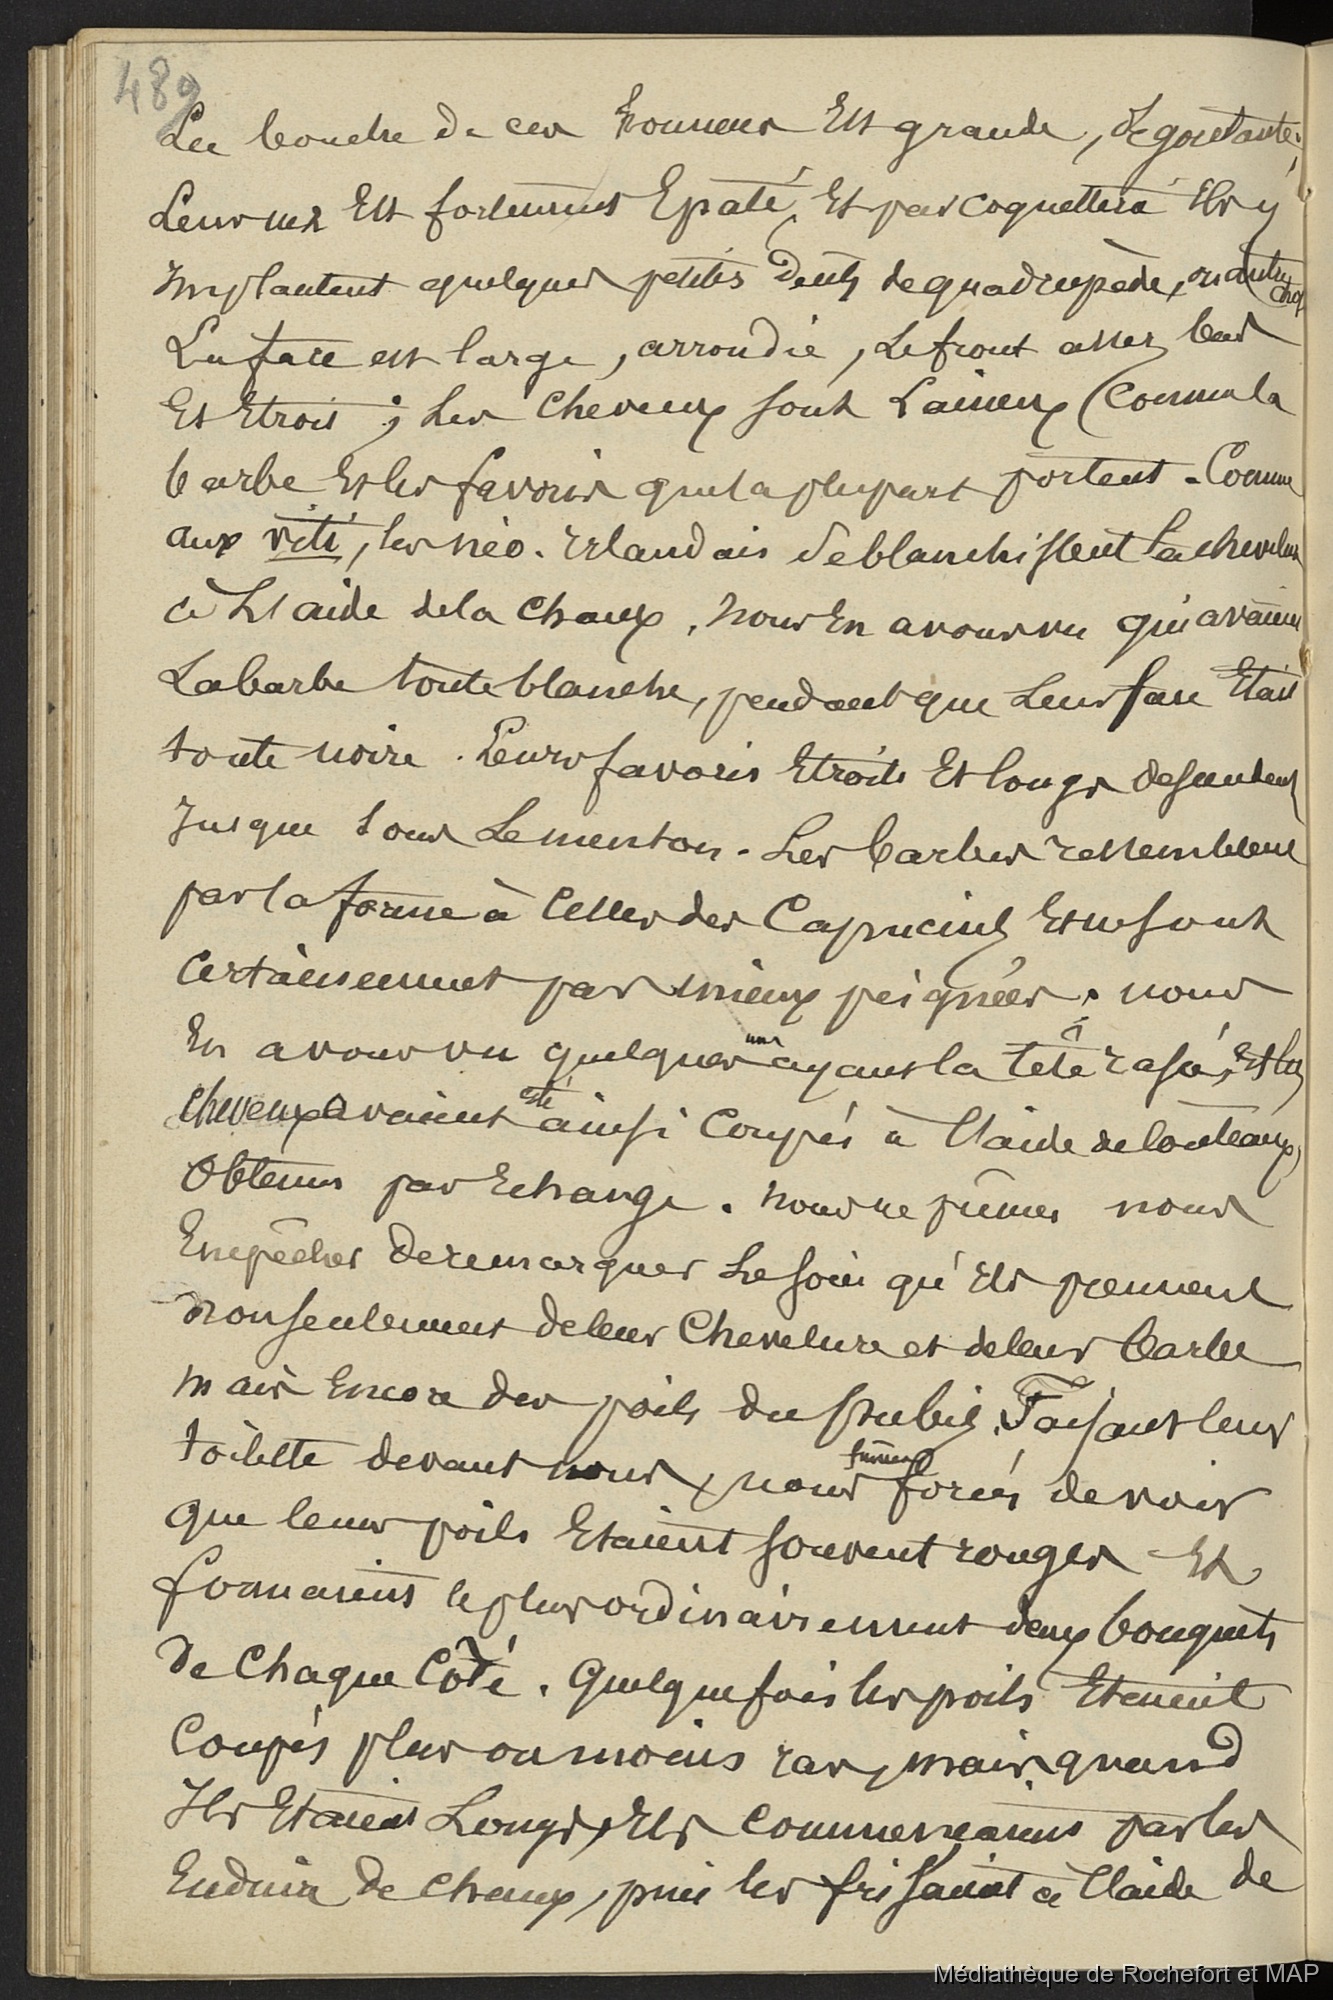 489
La bouche de ces hommes Est grande, Degoutante;
Leur nez Est fortement Epaté, Et par coquetterie Ils y
Implantent quelques petites Dents de quadrupède, ou autre chos
La face est large, arrondie, Le front assez bas
Et Etroit; Les Cheveux sont Laineux (Comme la
barbe Et les favoris que la plupart portent. Comme
aux viti, les néo-Irlandais Se blanchissent la chevelure
à L'aide de la Chaux. Nous En avons vu qui avaient
La barbe toute blanche, pendant que Leur face Etait
toute noire. Leurs favoris Etroits Et longs descendent
Jusque sous Le menton. Les barbes ressemblent
par la forme à Celles des Capucins Et ne sont
Certainement pas mieux peignées. nous
En avons vu quelques uns ayant la tete rasée, Et les
Cheveux avaient esté ainsi Coupés à l'aide de Couteaux,
Obtenus par Echange. Nous ne pûmes nous
Empêcher De remarquer Le soin qu'Ils prennent
Non seulement de leur Chevelure et de leur barbe
Mais Encore des poils du pubis. Faisant leur
toilette devant nous, nous fumes forcés de voir
que leurs poils Etaient souvent rouges Et
formaient le plus ordinairement deux bouquets
de Chaque Côté. Quelquefois les poils Etaient
Coupés plus ou moins ras, mais quand
Ils Etaient Longs, Ils Commencaient par les
Enduire de Chaux, puis les frisaient à l'aide de
Médiathèque de Rochefort et MAP